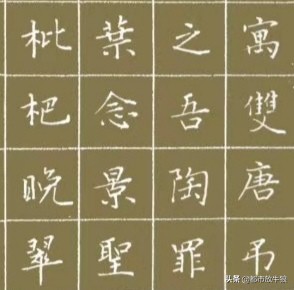 寓雙唐弔
之吾陶罪
葉念景聖
枇杷晚翠
头条 @都市放牛